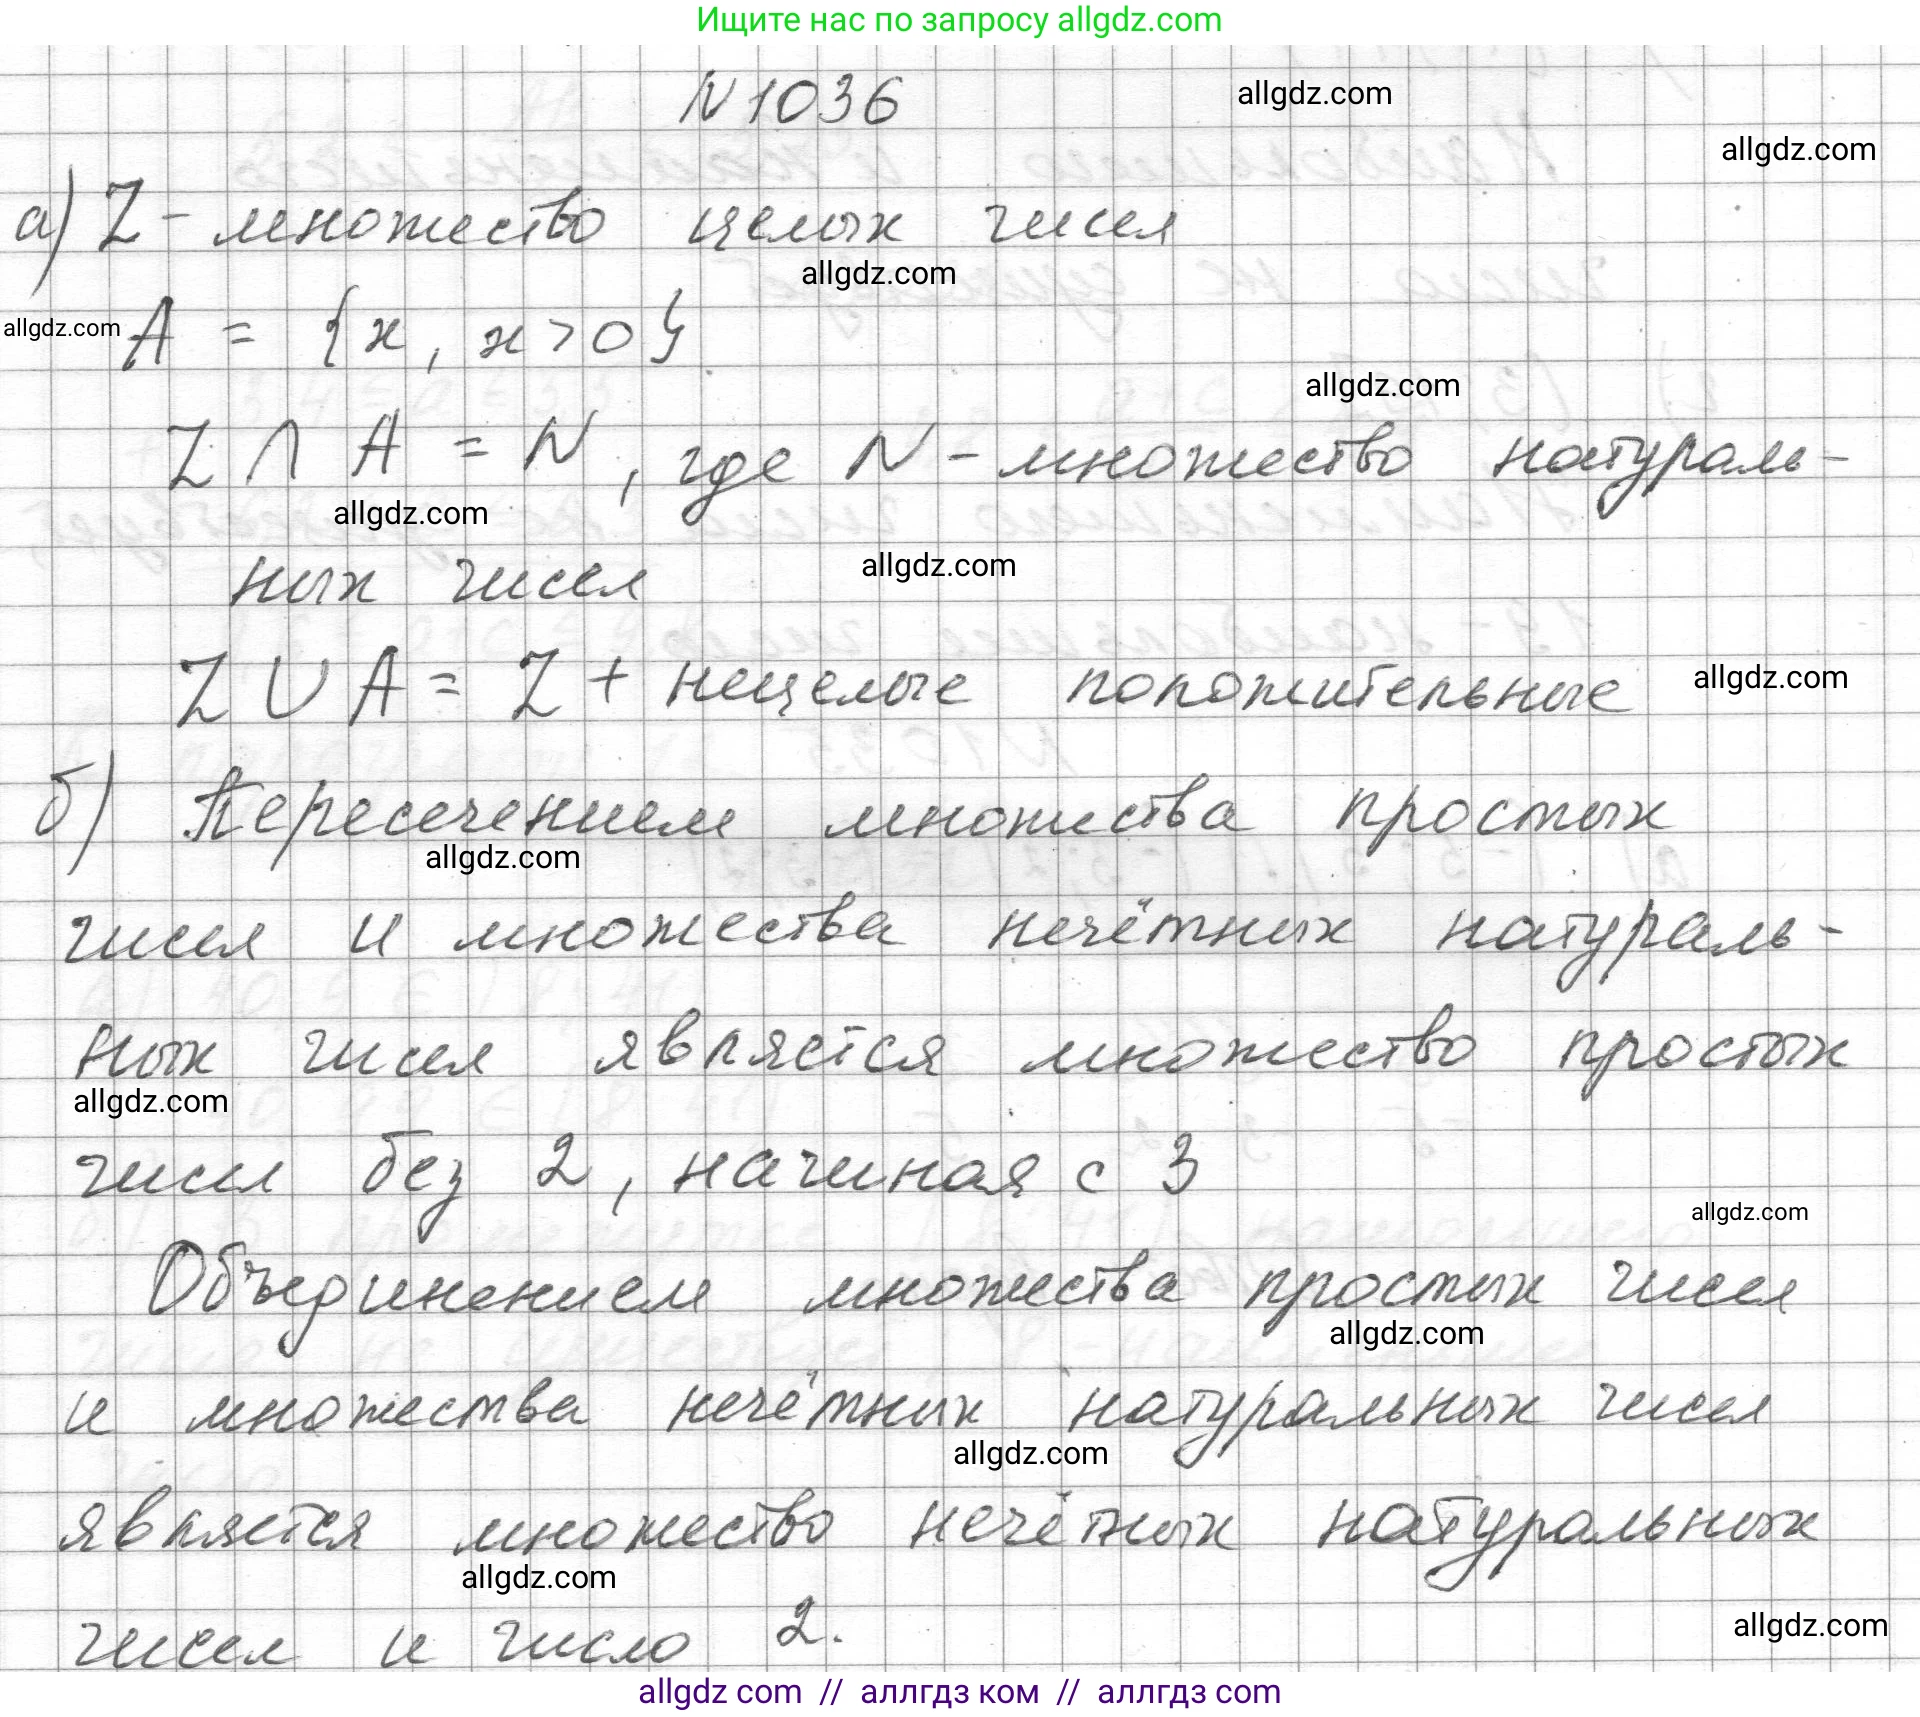 Ищите нас по запросу allgdz.com
N 1036
allgdz.com
allgdz.com
а) Z - множество целых чисел
allgdz.com
allgdz.com
A = {x, x > 0}
allgdz.com
Z ∩ A = N, где N - множество натураль-
allgdz.com
ных чисел
allgdz.com
Z ∪ A = Z + нецелые положительные
allgdz.com
б) Пересечением множества простых
allgdz.com
чисел и множества нечётных натураль-
ных чисел является множество простых
allgdz.com
чисел без 2, начиная с 3
allgdz.com
Объединением множества простых чисел
allgdz.com
и множества нечётных натуральных чисел
allgdz.com
является множество нечётных натуральных
allgdz.com
чисел и число 2.
allgdz.com
allgdz com // аллгдз ком // аллгдз com